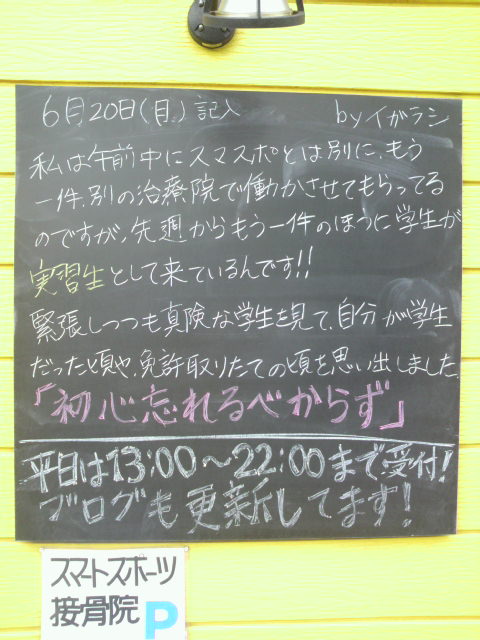 6月20日(月)記入 byイガラシ
私は午前中にスマスポとは別に、もう
一件、別の治療院で働かさせてもらってる
のですが、先週からもう一件のほうに学生が
実習生として来ているんです!!
緊張しつつも真険な学生を見て、自分が学生
だった頃や、免許取りたての頃を思い出しました。
「初心忘れるべからず」
平日は13:00〜22:00まで受付!
ブログも更新してます!
スマートスポーツ
接骨院 P